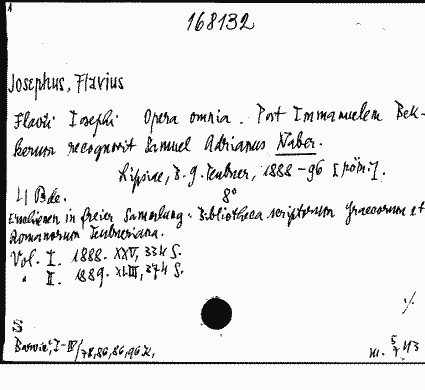 1
168132
Josephus, Flavius
Flavii Iosephi Opera omnia. Post Immanuelem Bek-
kerum recognovit Samuel Adrianus Naber.
Lipsiae, B. G. Teubner, 1888-96 [röm.].
4 Bde. 8°
Erschienen in freier Sammlung: Bibliotheca scriptorum Graecorum et
Romanorum Teubneriana.
Vol. I. 1888. XXV, 334 S.
" II. 1889. XLIII, 374 S.
S
I-IV/78,86,86,96 K,
·/.
III. 5/7 43